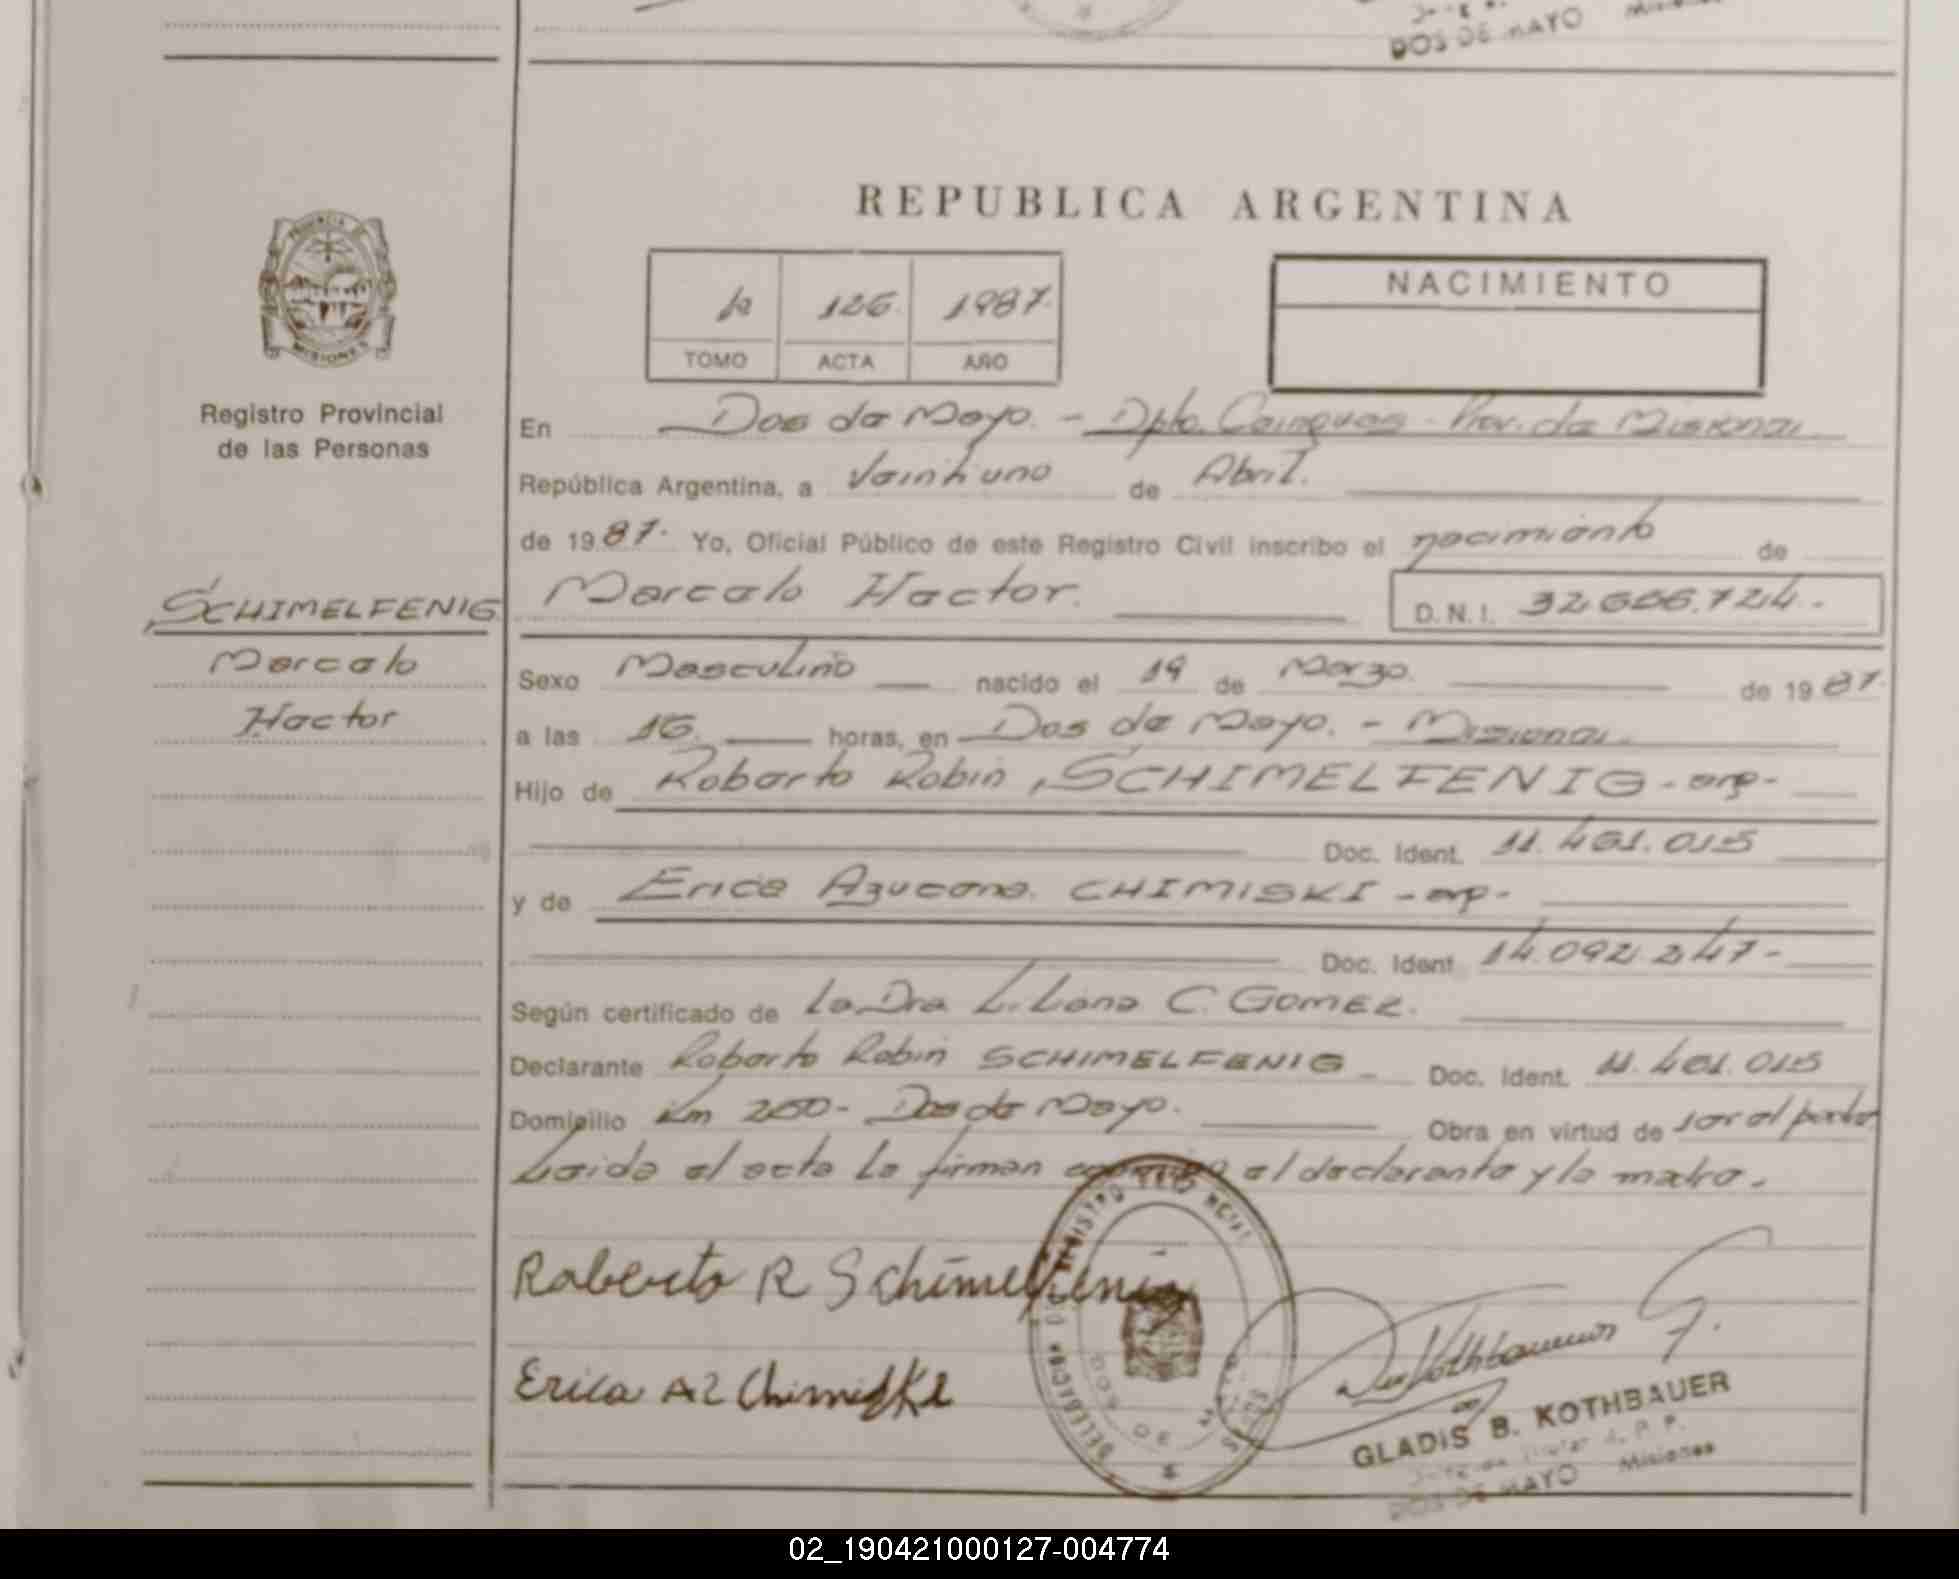 DOS DE MAYO
REPUBLICA ARGENTINA
PROVINCIA DE
MISIONES
Registro Provincial
de las Personas
126. 1987.
TOMO ACTA AÑO
NACIMIENTO
En Dos de Mayo. - Dpto. Cainguas - Prov. de Misiones.
República Argentina, a Veintiuno de Abril.
de 1987. Yo, Oficial Público de este Registro Civil inscribo el nacimiento de
SCHIMELFENIG
Marcelo Hector. D.N.I. 32.666.724.-
Marcelo
Hector
Sexo Masculino nacido el 19 de Marzo. de 1987.
a las 16. horas, en Dos de Mayo. - Misiones.
Hijo de Roberto Robin SCHIMELFENIG - arg-
Doc. Ident. 11.461.015
y de Erica Azucena. CHIMISKI - arg-
Doc. Ident 14.092.247-
Según certificado de La Dra Liliana C. GOMEZ.
Declarante Roberto Robin SCHIMELFENIG Doc. Ident. 11.461.015
Domicilio Km 260- Dos de Mayo. Obra en virtud de ser el padre
Leida el acta la firman el declarante y la madre.
Roberto R Schimelfenig
Erica AZ Chimiski
GLADIS B. KOTHBAUER
DOS DE MAYO Misiones
02_190421000127-004774